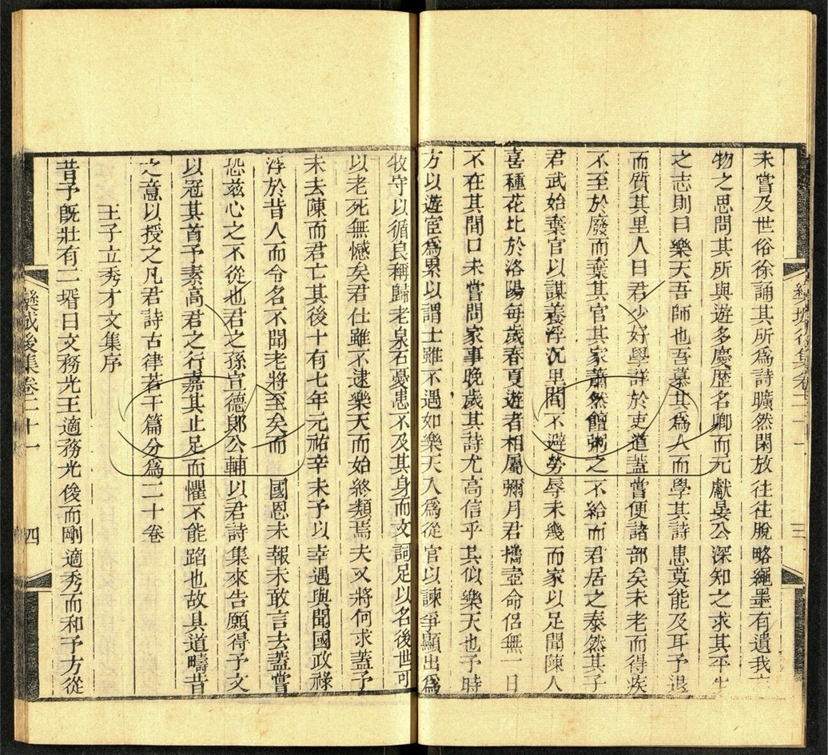 未嘗及世俗徐誦其所爲詩曠然閑放往往脫略繩墨有遺我
物之思問其所與遊多慶歷名卿而元獻晏公深知之求其平生
之志則曰樂天吾師也吾慕其爲人而學其詩患莫能及耳予退
而質其里人曰君少好學詳於吏道蓋嘗便諸部矣未老而得疾
不至於廢而棄其官其家蕭然饘粥之不給而君居之泰然其子
君武始棄官以謀養浮沉里閭不避勞辱未幾而家以足聞陳人
喜種花比於洛陽每歲春夏遊者相屬彌月君攜壺命侶無一日
不在其間口未嘗問家事晚歲其詩尤高信乎其似樂天也予時
方以遊宦爲累以謂士雖不遇如樂天入爲從官以諫爭顯出爲
欒城後集卷二十一
三
牧守以循良稱歸老泉石憂患不及其身而文詞足以名後世可
以老死無憾矣君仕雖不逮樂天而始終類焉夫又將何求蓋予
未去陳而君亡其後十有七年元祐辛未予以幸遇與聞國政祿
浮於昔人而令名不聞老將至矣而 國恩未報未敢言去蓋嘗
恐茲心之不從也君之孫宣德郎公輔以君詩集來告願得予文
以冠其首予素高君之行嘉其止足而懼不能蹈也故具道疇昔
之意以授之凡君詩古律若干篇分爲二十卷
王子立秀才文集序
昔予既壯有二壻曰文務光王適務光俊而剛適秀而和予方從
欒城後集卷二十一
四